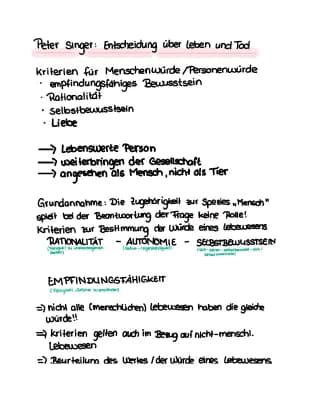 Peter Singer: Entscheidung über Leben und Tod
Kriterien für Menschenwürde/Personenwürde
· empfindungsfähiges Bewusstsein
· Rationalität
· Selbstbewusstsein
· Liebe
→ Lebenswerte Person
→ weiterbringen der Gesellschaft
→ angesehen als Mensch, nicht als Tier
Grundannahme: Die Zugehörigkeit zur Spezies „Mensch"
spielt bei der Beantwortung der Frage keine Rolle!
Kriterien zur Bestimmung der Würde eines Lebewesens
RATIONALITÄT - AUTONOMIE - SELBSTBEWUSSTSEIN
EMPFINDUNGSFÄHIGKEIT
=) nicht alle (menschlichen) Lebewesen haben die gleiche
würde!!
=) Kriterien gelten auch im Bezug auf nicht-menschl.
Lebewesen
=) Beurteilung des Wertes / der Würde eines Lebewesens